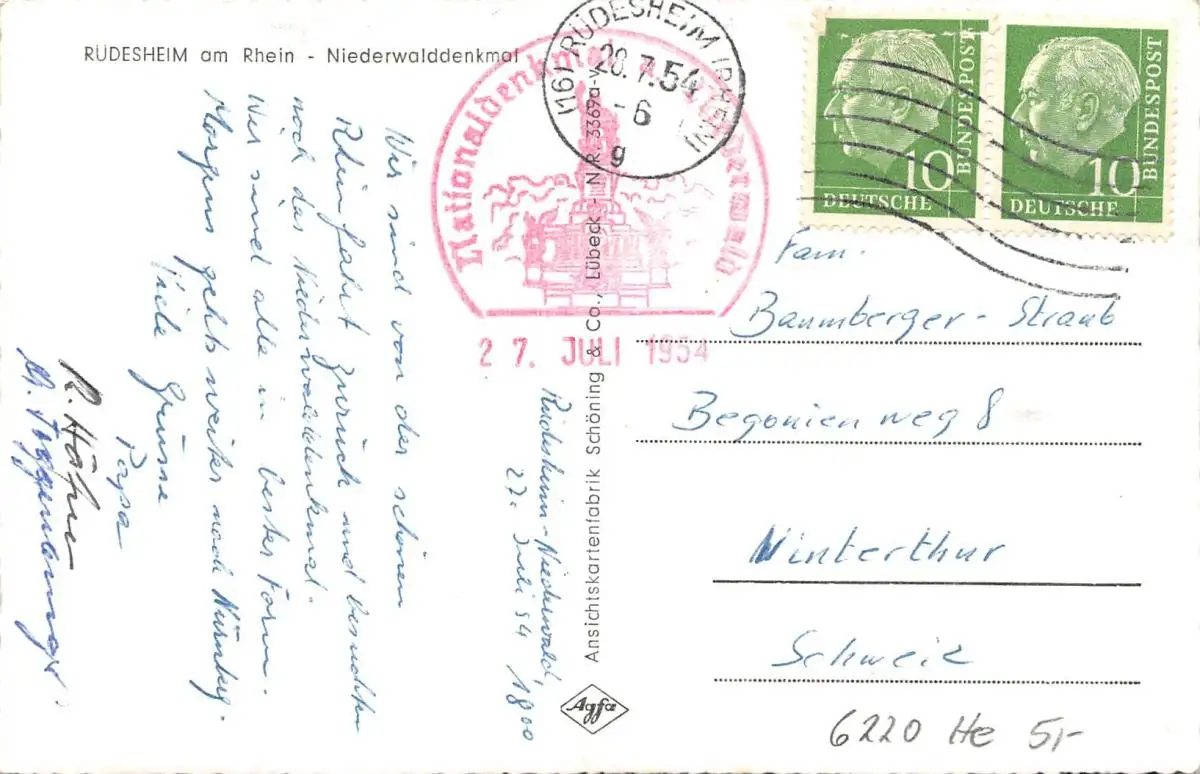 RÜDESHEIM am Rhein - Niederwalddenkmal
Rüdesheim-Niederwald,
27. Juli 54 1800
Wir sind von der schönen
Rheinfahrt zurück und besuchten
noch das Niederwalddenkmal.
Wir sind alle in bester Form.
Morgens gehts weiter nach Nürnberg.
Viele Grüsse
Papa
R. Höhn
M. Toggenburger
Nationaldenkmal a. d. Niederwald
27. JULI 1954
(16) RÜDESHEIM (RHEIN)
28.7.54
-6
g
10
DEUTSCHE
BUNDESPOST
10
DEUTSCHE
BUNDESPOST
Ansichtskartenfabrik Schöning & Co., Lübeck - N.R. 3369a-v
Agfa
Fam.
Baumberger-Straub
Begonienweg 8
Winterthur
Schweiz
6220 He 5,-